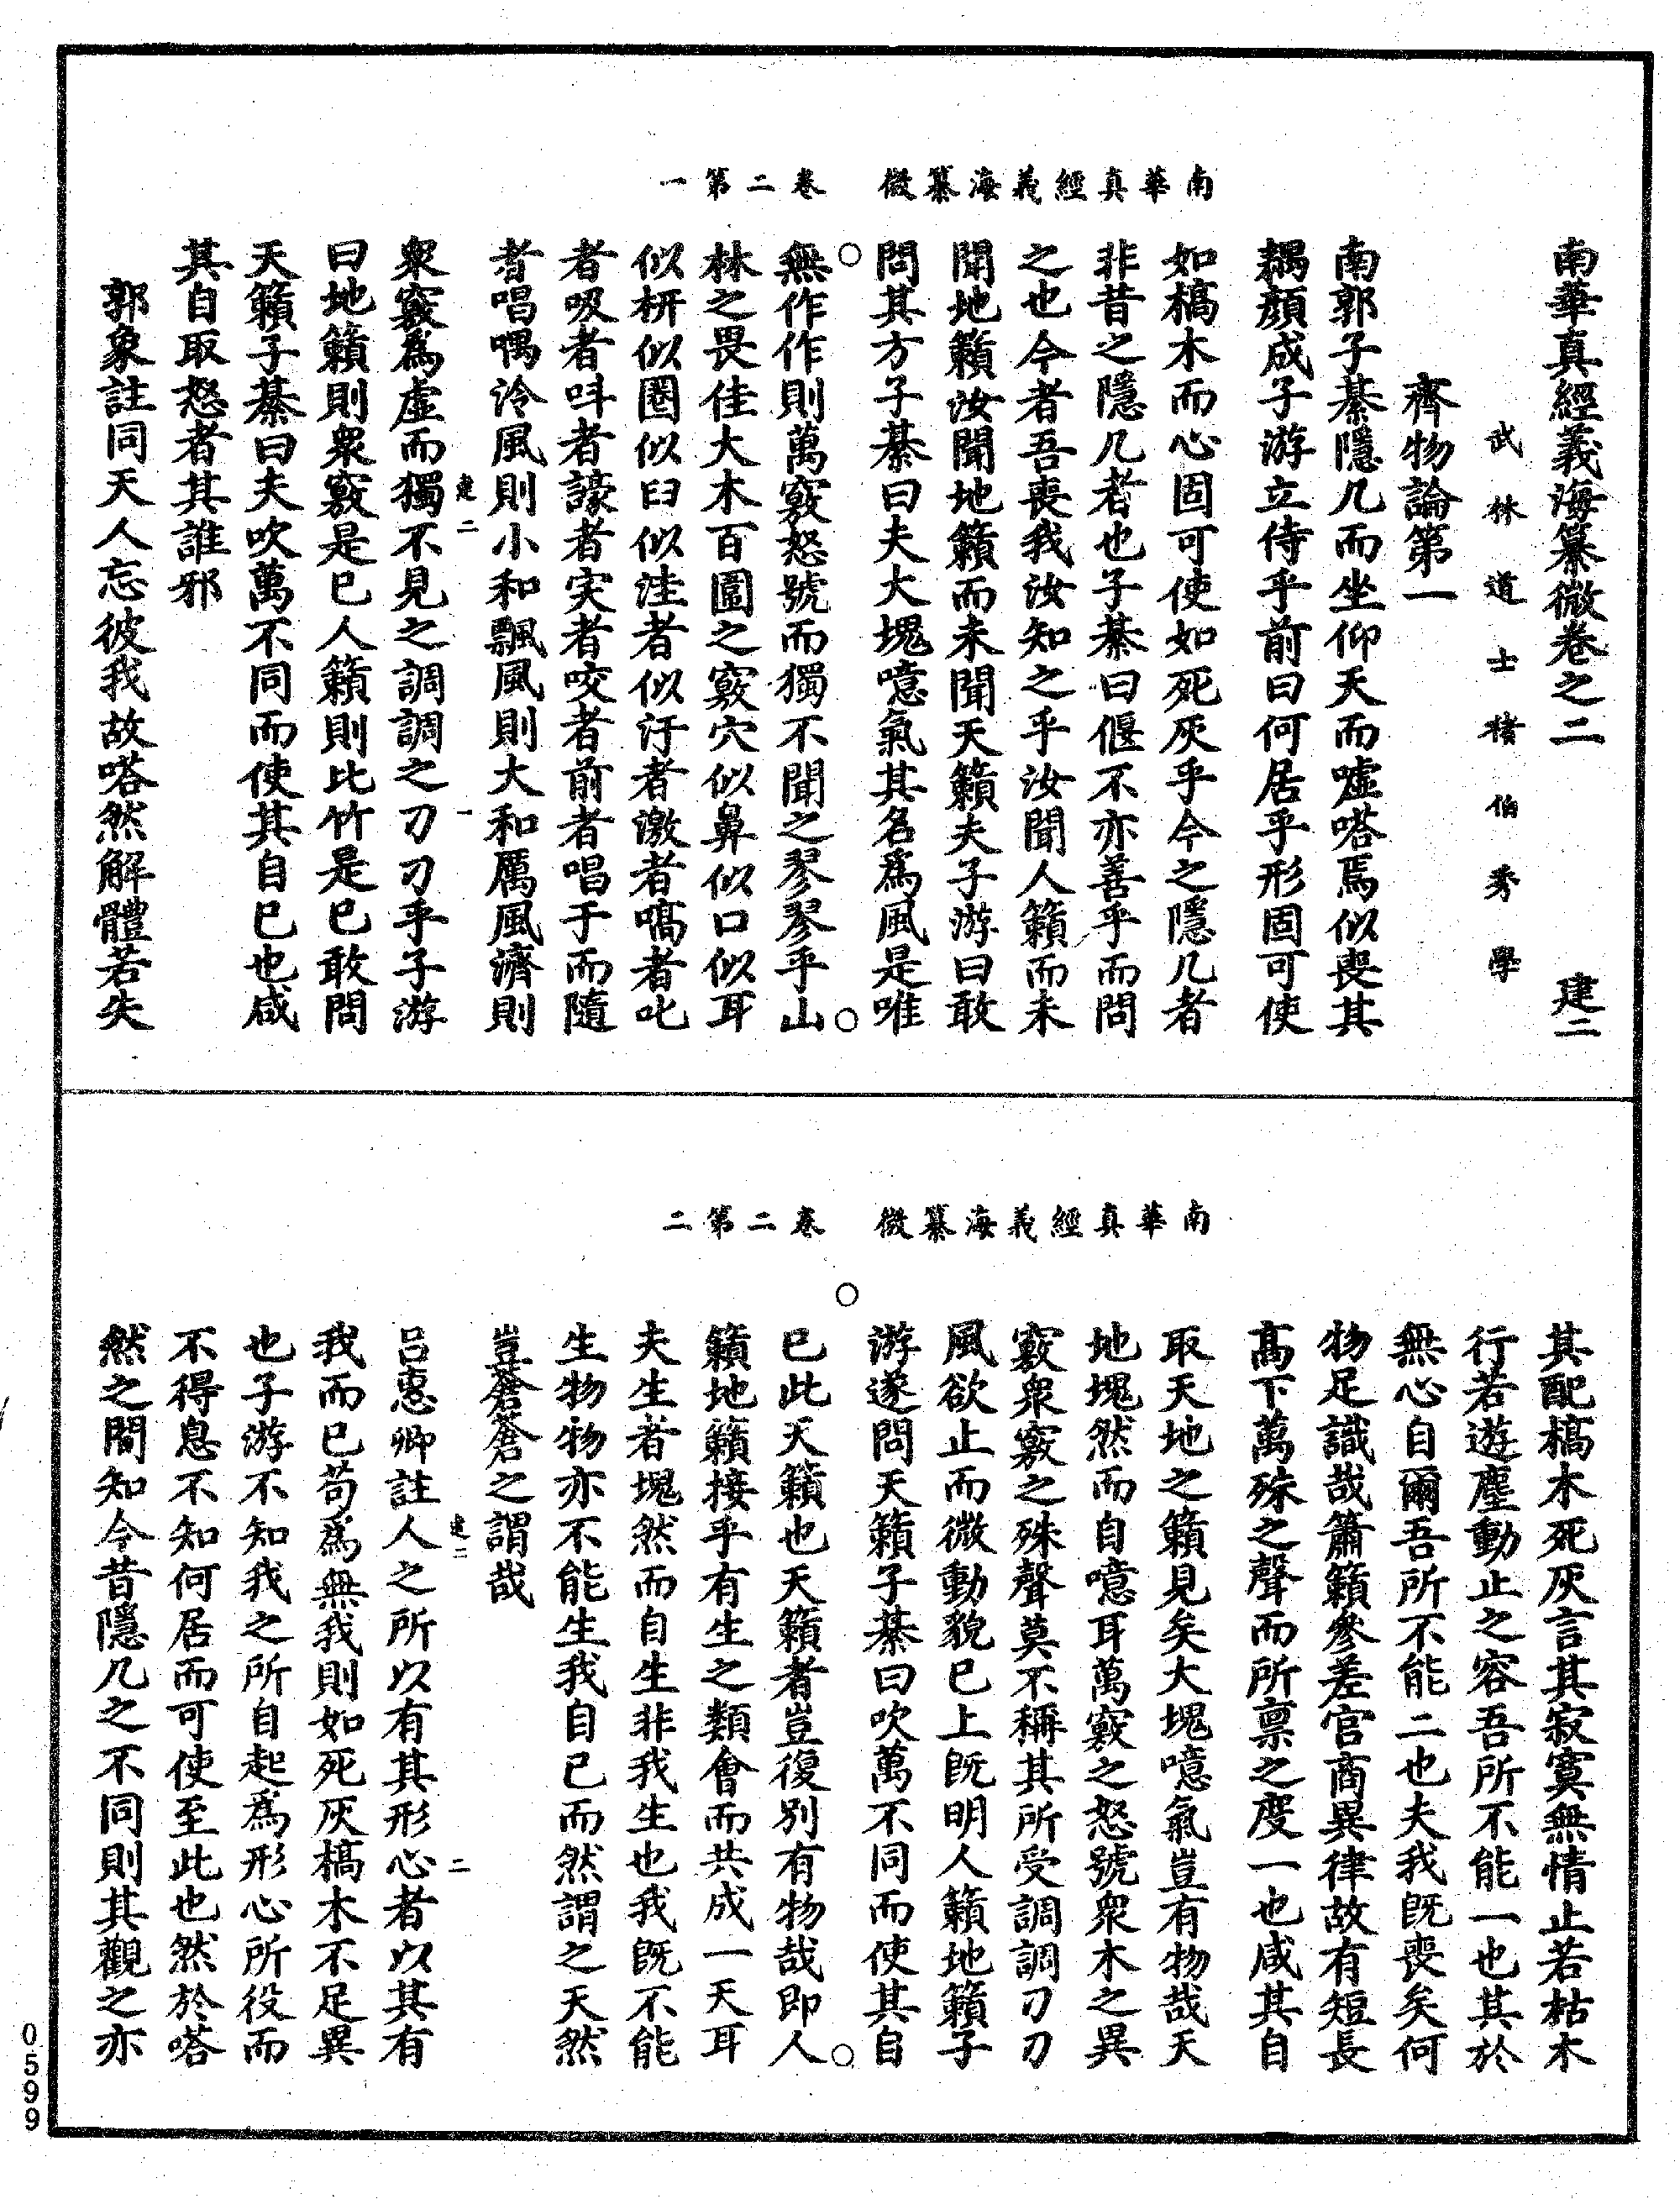 南華真經義海纂微　卷二第一
南華真經義海纂微卷之二　建二
武林道士褚伯秀學
齊物論第一
南郭子綦隱几而坐仰天而噓嗒焉似喪其
耦顏成子游立侍乎前曰何居乎形固可使
如槁木而心固可使如死灰乎今之隱几者
非昔之隱几者也子綦曰偃不亦善乎而問
之也今者吾喪我汝知之乎汝聞人籟而未
聞地籟汝聞地籟而未聞天籟夫子游曰敢
問其方子綦曰夫大塊噫氣其名爲風是唯
無作作則萬竅怒號而獨不聞之翏翏乎山
林之畏佳大木百圍之竅穴似鼻似口似耳
似枅似圈似臼似洼者似汙者激者謞者叱
者吸者叫者譹者宎者咬者前者唱于而隨
者唱喁泠風則小和飄風則大和厲風濟則
建二　一
衆竅爲虛而獨不見之調調之刀刀乎子游
曰地籟則衆竅是已人籟則比竹是已敢問
天籟子綦曰夫吹萬不同而使其自已也咸
其自取怒者其誰邪
郭象註同天人忘彼我故嗒然解體若失
南華真經義海纂微　卷二第二
其配槁木死灰言其寂寞無情止若枯木
行若遊塵動止之容吾所不能一也其於
無心自爾吾所不能二也夫我旣喪矣何
物足識哉簫籟參差宮商異律故有短長
高下萬殊之聲而所禀之度一也咸其自
取天地之籟見矣大塊噫氣豈有物哉天
地塊然而自噫耳萬竅之怒號衆木之異
竅衆竅之殊聲莫不稱其所受調調刀刀
風欲止而微動貌已上旣明人籟地籟子
游遂問天籟子綦曰吹萬不同而使其自
已此天籟也天籟者豈復別有物哉即人
籟地籟接乎有生之類會而共成一天耳
夫生者塊然而自生非我生也我旣不能
生物物亦不能生我自已而然謂之天然
豈蒼蒼之謂哉
建二　二
呂惠卿註人之所以有其形心者以其有
我而已苟爲無我則如死灰槁木不足異
也子游不知我之所自起爲形心所役而
不得息不知何居而可使至此也然於嗒
然之間知今昔隱几之不同則其觀之亦
0599